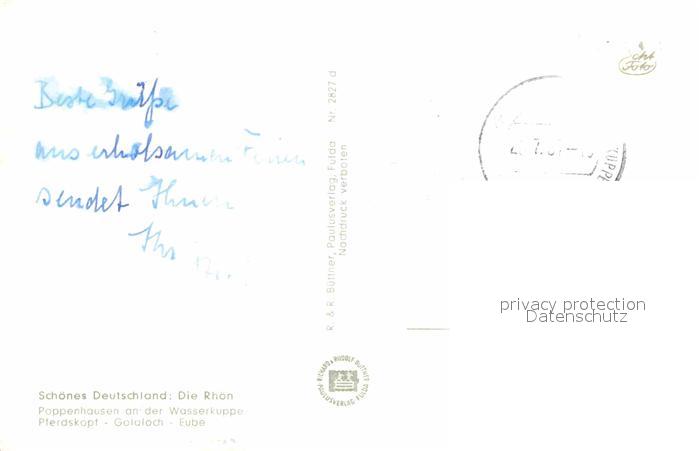 Beste Grüße
aus erholsamen Ferien
sendet Ihnen
Ihr
R. & R. Büttner, Paulusverlag, Fulda Nr. 2827 d
Nachdruck verboten
Foto
KUPPE
privacy protection
Datenschutz
RICHARD & RUDOLF BÜTTNER
PAULUSVERLAG FULDA
Schönes Deutschland: Die Rhön
Poppenhausen an der Wasserkuppe
Pferdskopf - Goldloch - Eube